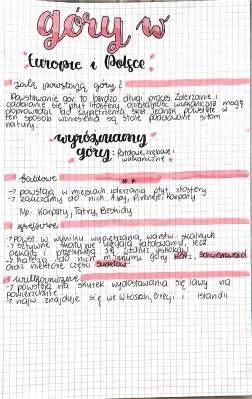 góry w
Europie i Polsce
Jak powstają góry?
Powstawanie gór to bardzo długi proces. Zderzanie i
oddalanie się płyt litosfery, działalność wulkaniczna mogą
doprowadzić do wypiętrzenia skał
ten sposób wzniesienia są stale poddawane siłom
natury.
wyróżniamy
góry: fałdowe, zrębowe i
wulkaniczne
fałdowe
→ powstają w miejscach zderzania płyt litosfery
→ zaliczamy do nich Alpy, Pireneje, Karpaty
Np. Karpaty, Tatry, Beskidy
zrębowe
→ Powst. w wyniku wypiętrzania warstw skalnych
→ sztywne skały nie ulegają fałdowaniu, lecz
pękają i przesuwają się wzdłuż uskoków
→ należą do nich m.innymi góry Harz, Schwarzwald
oraz niektóre części Sudetów
wulkaniczne
→ powstają na skutek wydostawania się lawy na
powierzchnię
→ najw. znajduje się we Włoszech, Grecji i Islandii